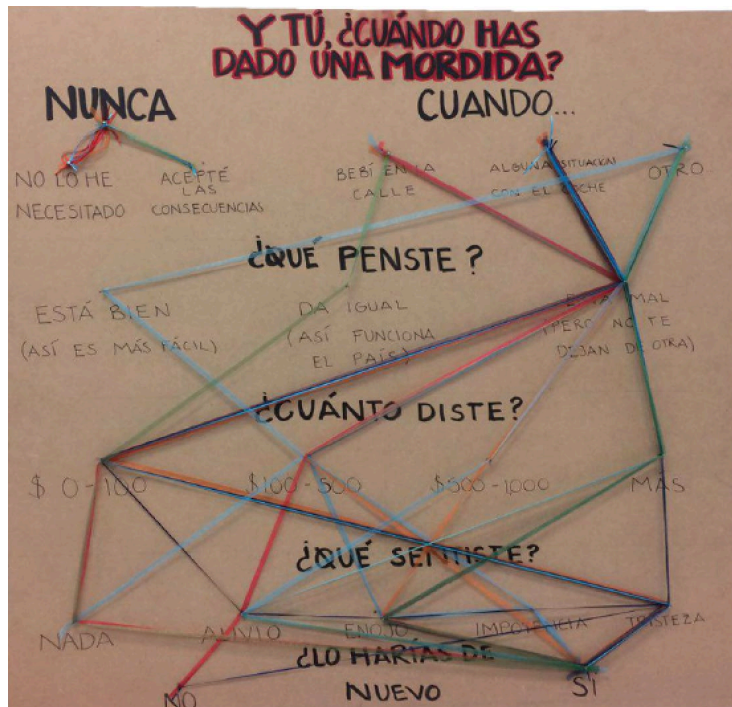 Y TÚ, ¿CUÁNDO HAS
DADO UNA MORDIDA?
NUNCA
CUANDO...
NO LO HE
NECESITADO
ACEPTÉ
LAS
CONSECUENCIAS
BEBÍ EN LA
CALLE
ALGUNA SITUACIÓN
CON EL COCHE
OTRO
¿QUÉ PENSTE?
ESTÁ BIEN
(ASÍ ES MÁS FÁCIL)
DA IGUAL
(ASÍ FUNCIONA
EL PAÍS)
ESTÁ MAL
(PERO NO TE
DEJAN DE OTRA)
¿CUÁNTO DISTE?
$ 0-100
$100-500
$500-1,000
MÁS
¿QUÉ SENTISTE?
NADA
ALIVIO
ENOJO
IMPOTENCIA
TRISTEZA
¿LO HARÍAS DE
NUEVO
NO
SÍ